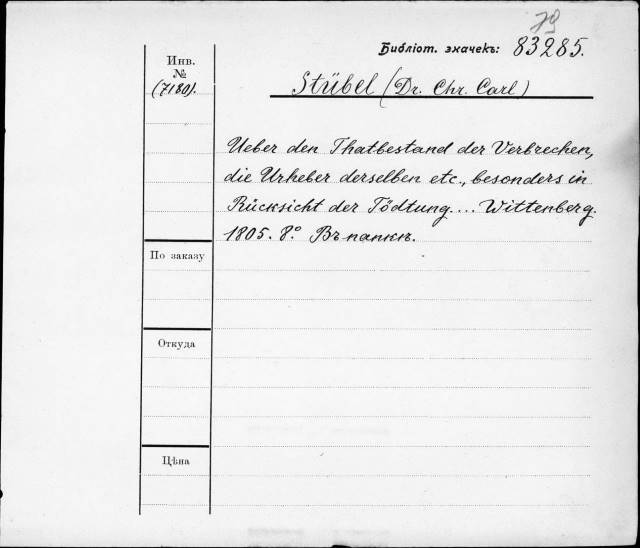 79
Библіот. значекъ: 83285.
Инв.
№
(7180).
Stübel (Dr. Chr. Carl)
Ueber den Thatbestand der Verbrechen,
die Urheber derselben etc., besonders in
Rücksicht der Tödtung.... Wittenberg.
1805. 8.° Въ папкѣ.
По заказу
Откуда
Цѣна